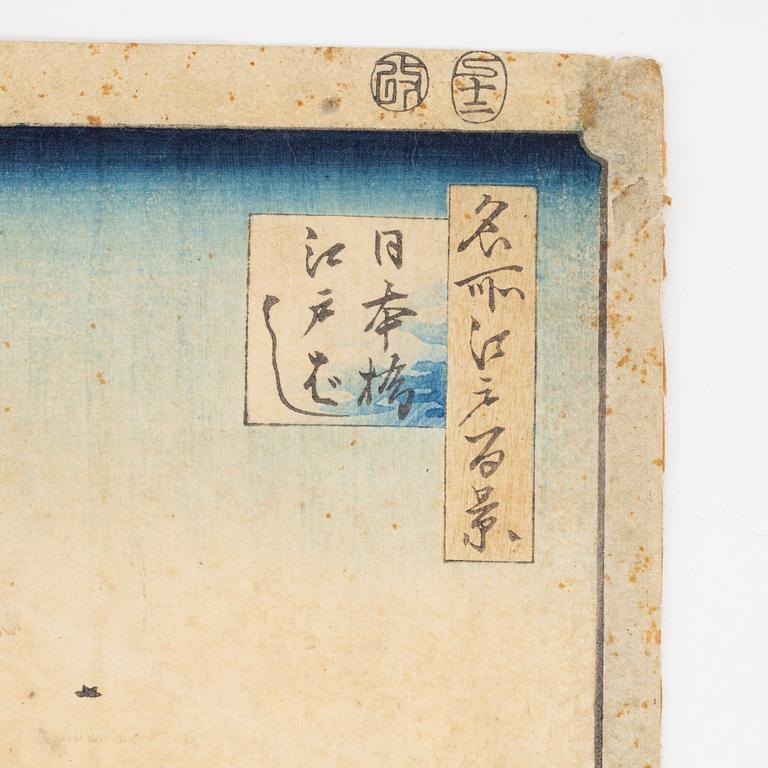 改
巳十二
名所江戸百景
日本橋
江戸ばし